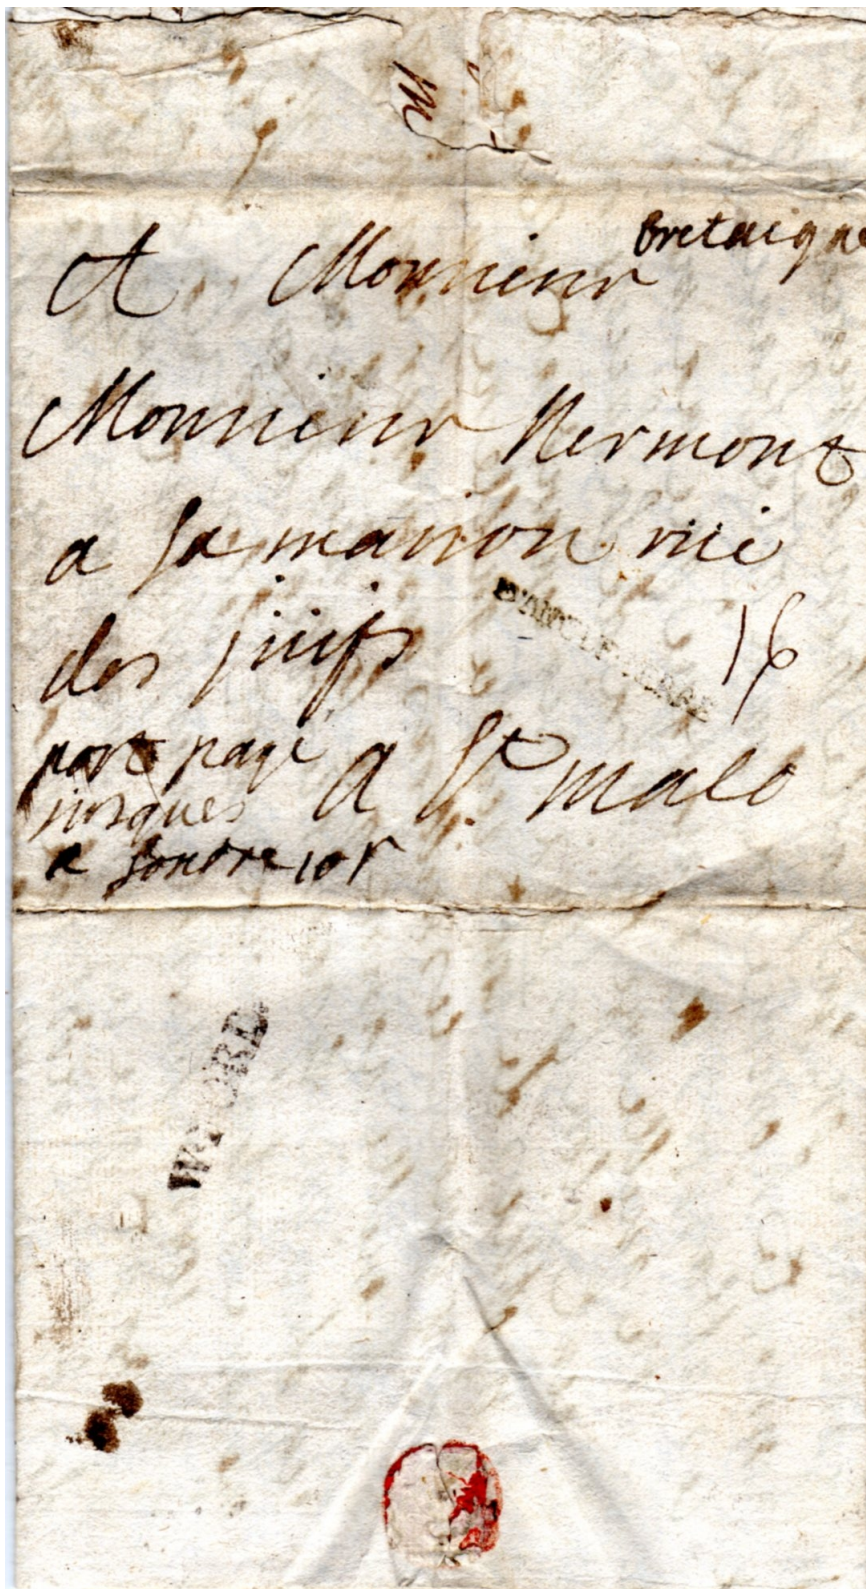 Bretaigne
A Monsieur
Monsieur Kermont
a sa maison rüe
des juifs
D'ANGLETERRE
16
port paÿé
jusques
a Londre 10s
a St malo
W·FORD